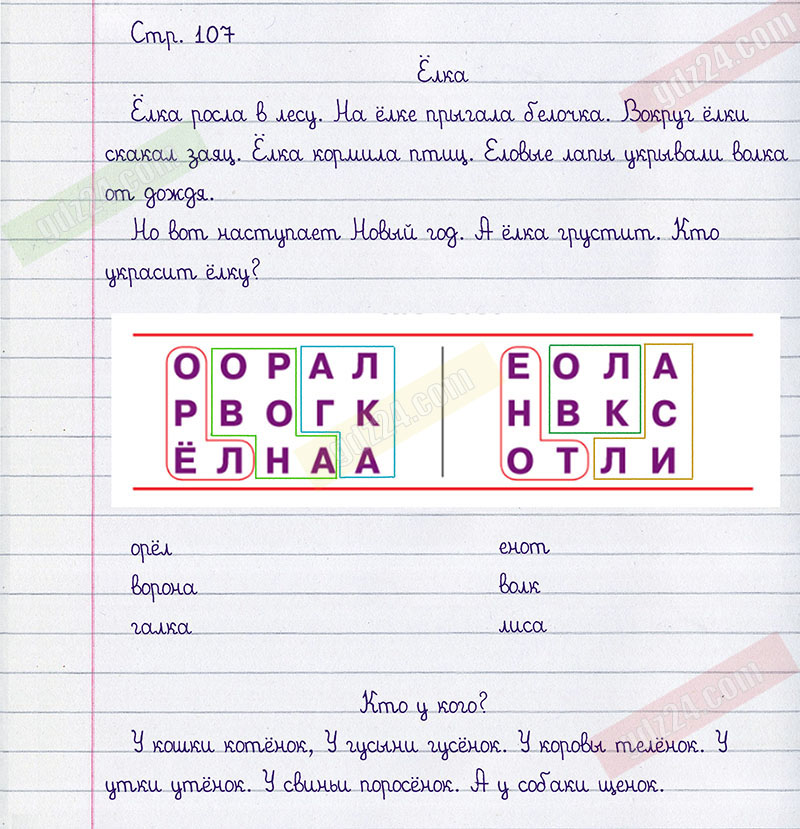 Стр. 107
Ёлка
Ёлка росла в лесу. На ёлке прыгала белочка. Вокруг ёлки
скакал заяц. Ёлка кормила птиц. Еловые лапы укрывали волка
от дождя.
Но вот наступает Новый год. А ёлка грустит. Кто
украсит ёлку?
О О Р А Л Е О Л А
Р В О Г К Н В К С
Ё Л Н А А О Т Л И
орёл енот
ворона волк
галка лиса
Кто у кого?
У кошки котёнок, У гусыни гусёнок. У коровы телёнок. У
утки утёнок. У свиньи поросёнок. А у собаки щенок.
gdz24.com
gdz24.com
gdz24.com
gdz24.com